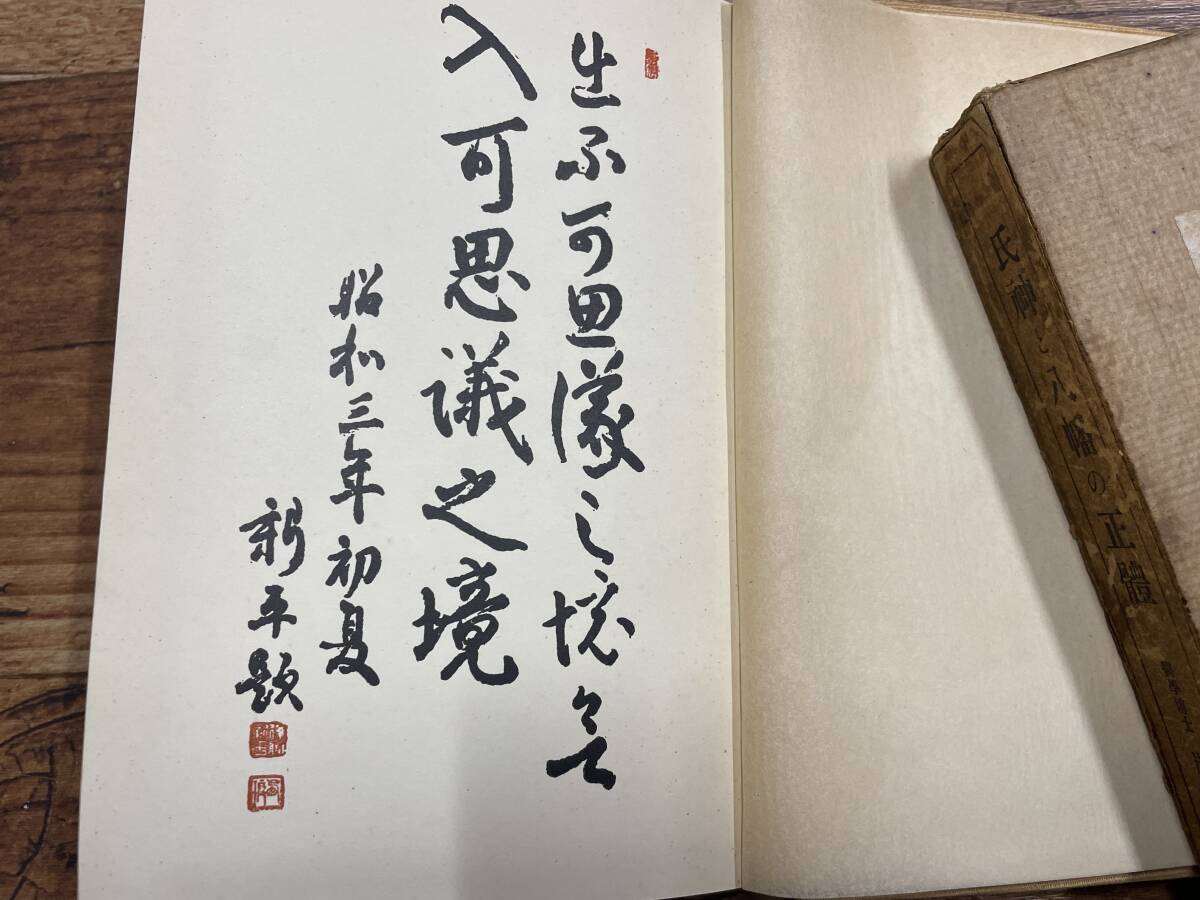 出不可思議之境
入可思議之境
昭和三年初夏
新平題
氏神と八幡の正體